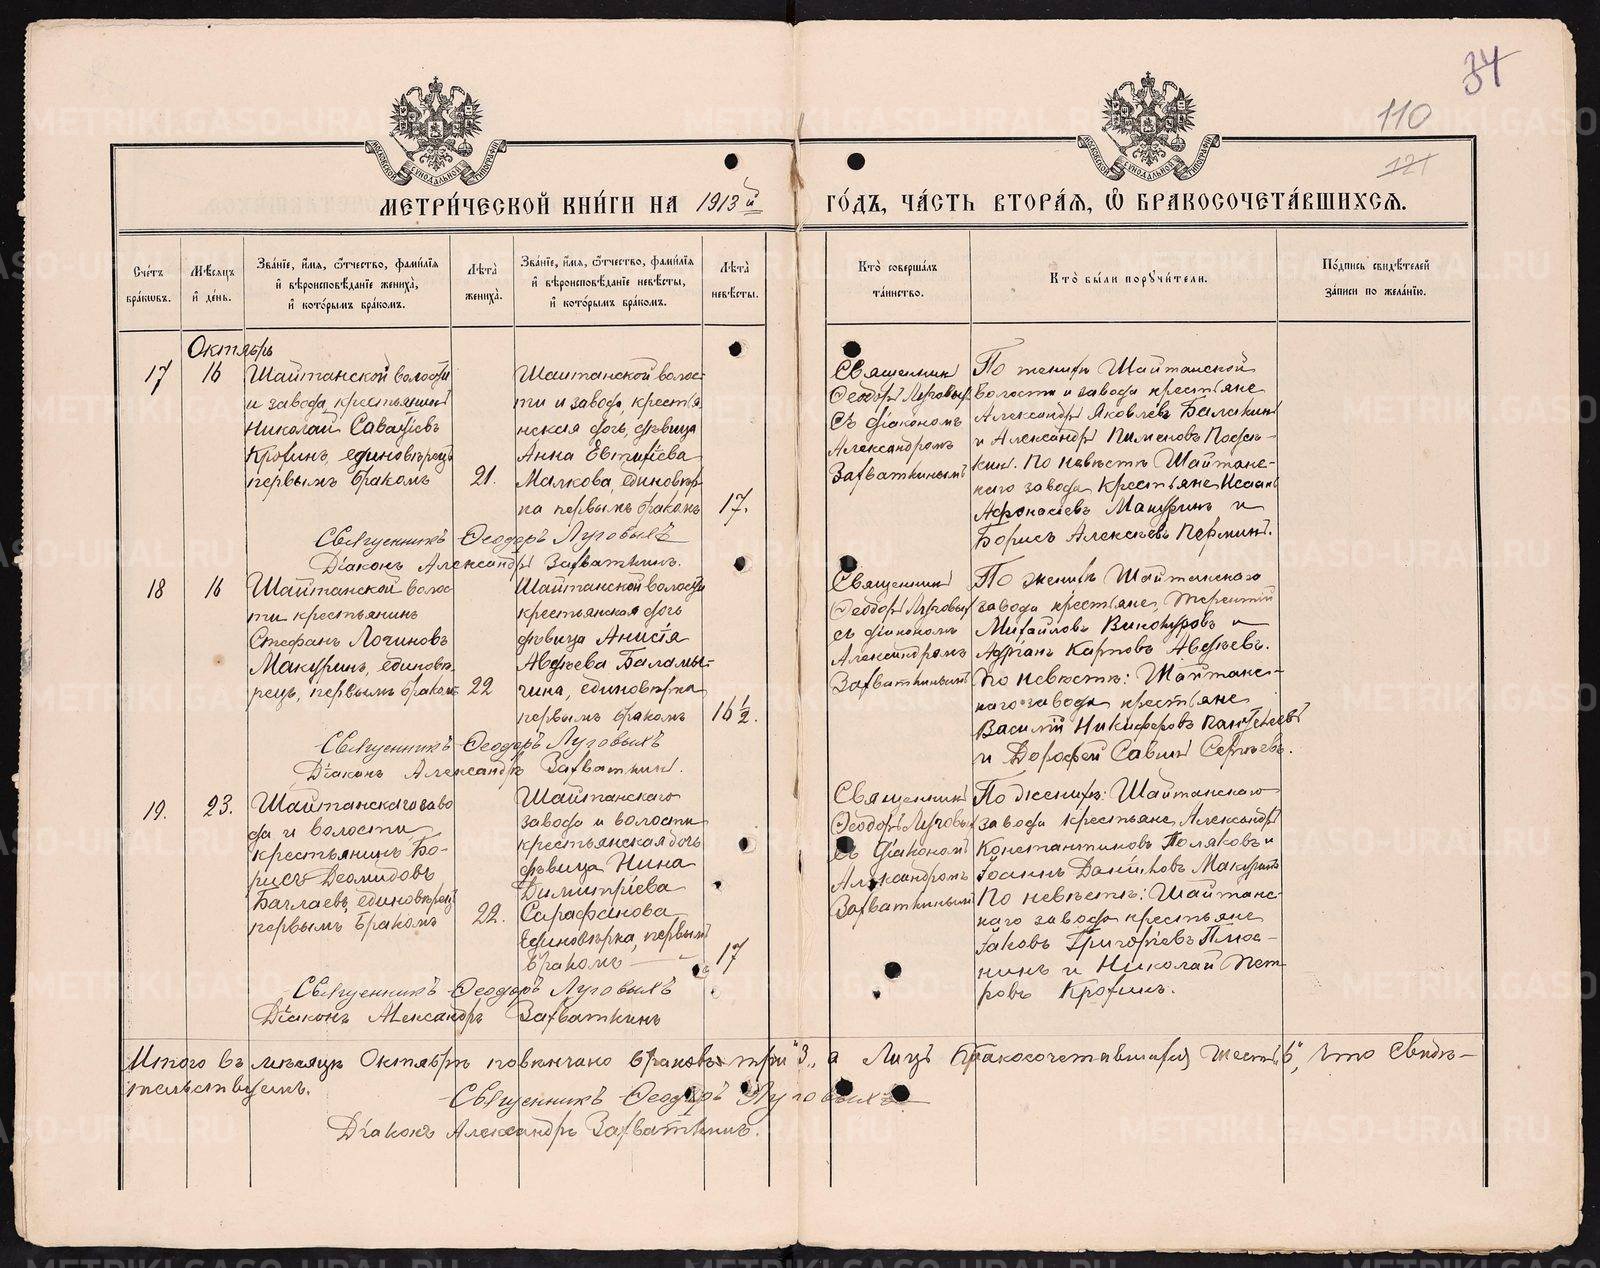 34
110
121
МЕТРИ́ЧЕСКОЙ КНИ́ГИ НА 1913й ГО́ДЪ, ЧА́СТЬ ВТОРА́Я, Ѽ БРАКОСОЧЕТА́ВШИХСЯ.
Сче́тъ бра́кѡвъ.
Мѣ́сяцъ и҆ де́нь.
Зва́нїе, и҆́мя, ѻ҆́тчество, фами́лїя и҆ вѣроисповѣ́данїе жениха̀, и҆ кото́рымъ бра́комъ.
Лѣ́та жениха̀.
Зва́нїе, и҆́мя, ѻ҆́тчество, фами́лїя и҆ вѣроисповѣ́данїе невѣ́сты, и҆ кото́рымъ бра́комъ.
Лѣ́та невѣ́сты.
Кто̀ соверша́лъ та́инство.
Кто̀ бы́ли порꙋчи́тели.
По́дпись свидѣ́телей за́писи по жела́нїю.
Октябрь
17
16
Шайтанской волости
и завода, крестьянинъ
Николай Саватіевъ
Крохинъ, единовѣрецъ
первымъ бракомъ
21.
Шайтанской волос-
ти и завода, крестья
нская дочь, дѣвица
Анна Евтихіева
Малкова, единовѣр
ка первымъ бракомъ
17.
Священникъ
Ѳеодоръ Луговыхъ
съ діакономъ
Александромъ
Захваткинымъ
По женихѣ Шайтанской
волости и завода крестьяне
Александръ Яковлевъ Балакинъ
и Александръ Пименовъ
По невѣстѣ Шайтанс-
каго завода крестьяне Исаакъ
Афонасіевъ Макуринъ и
Борисъ Алексѣевъ Перминъ.
Священникъ Ѳеодоръ Луговыхъ
Діаконъ Александръ Захваткинъ.
18
16
Шайтанской волос
ти крестьянинъ
Стефанъ Логиновъ
Макуринъ, единовѣ
рецъ, первымъ бракомъ
22
Шайтанской волости
крестьянская дочь
дѣвица Анисія
Авдѣева Баламы-
гина, единовѣрка
первымъ бракомъ
16 ½.
Священникъ
Ѳеодоръ Луговыхъ
съ діакономъ
Александромъ
Захваткинымъ
По женихѣ Шайтанскаго
завода крестьяне, Терентій
Михайловъ Винокуровъ и
Адріанъ Карповъ Авдѣевъ.
По невѣстѣ: Шайтанс-
каго завода крестьяне
Василій Никифоровъ Пантелеевъ
и Дорофей Савинъ Сергѣевъ.
Священникъ Ѳеодоръ Луговыхъ
Діаконъ Александръ Захваткинъ.
19.
23.
Шайтанскаго заво
да и волости
крестьянинъ Бо-
рисъ Деомидовъ
Баглаевъ, единовѣрецъ
первымъ бракомъ
22.
Шайтанскаго
завода и волости
крестьянская дочь
дѣвица Нина
Димитріева
Сарафанова
единовѣрка, первымъ
бракомъ
17
Священникъ
Ѳеодоръ Луговыхъ
съ діакономъ
Александромъ
Захваткинымъ
По женихѣ: Шайтанскаго
завода крестьяне Александръ
Константиновъ Поляковъ и
Іоаннъ Даниловъ Макуринъ
По невѣстѣ: Шайтанс-
каго завода крестьяне
Іаковъ Григоріевъ Плюс-
нинъ и Николай Пет
ровъ Крохинъ.
Священникъ Ѳеодоръ Луговыхъ
Діаконъ Александръ Захваткинъ
Итого въ мѣсяцѣ Октябрѣ повѣнчано браковъ три „3„, а лицъ бракосочетавшихся шесть „6„, что свидѣ-
тельствуемъ.
Священникъ Ѳеодоръ Луговыхъ
Діаконъ Александръ Захваткинъ.
METRIKI.GASO-URAL.RU